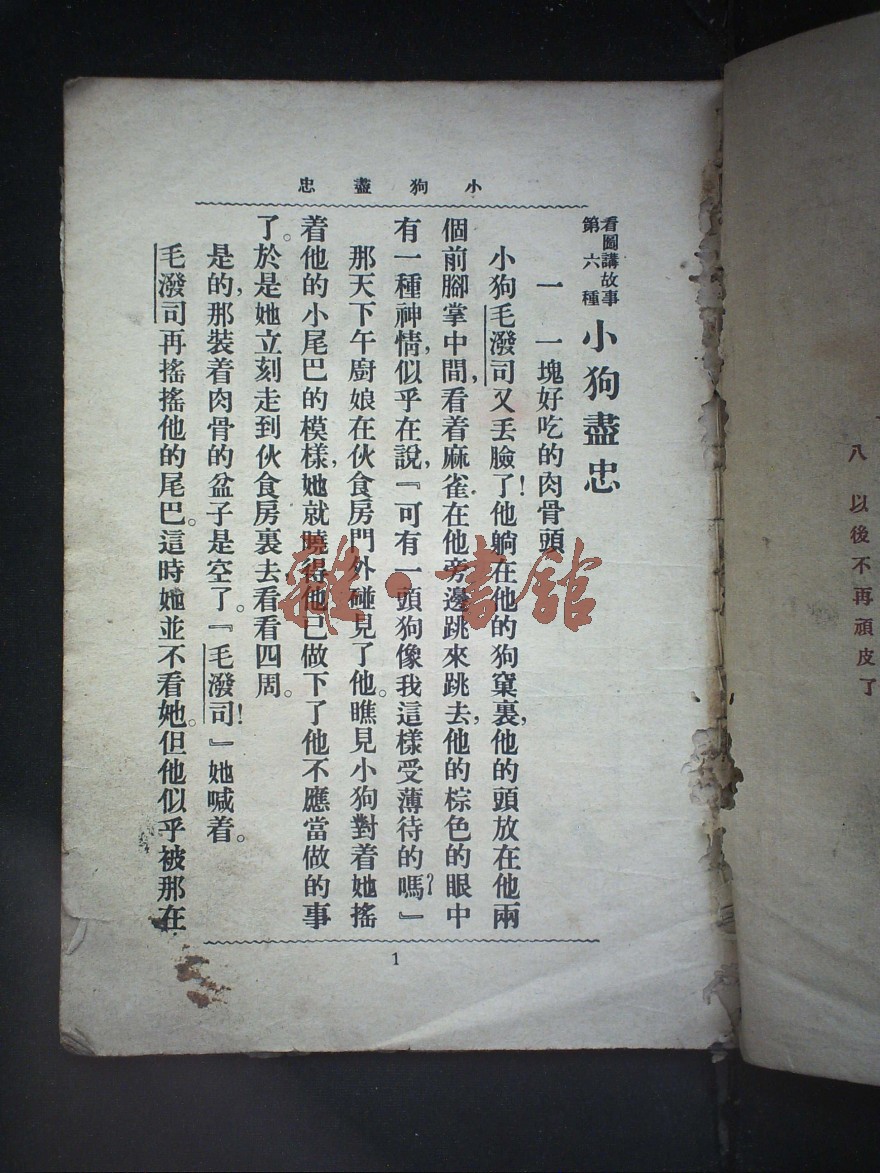 八 以後不再頑皮了
小狗盡忠
看圖講故事
第六種
小狗盡忠
一 一塊好吃的肉骨頭
小狗毛潑司又丟臉了!他躺在他的狗窠裏,他的頭放在他兩
個前腳掌中間,看着麻雀在他旁邊跳來跳去,他的棕色的眼中
有一種神情,似乎在說,『可有一頭狗像我這樣受薄待的嗎?』
那天下午廚娘在伙食房門外碰見了他。瞧見小狗對着她搖
着他的小尾巴的模樣,她就曉得他已做下了他不應當做的事
了。於是她立刻走到伙食房裏去看看四周。
是的,那裝着肉骨的盆子是空了。『毛潑司!』她喊着。
毛潑司再搖搖他的尾巴。這時她並不看她。但他似乎被那在
1
雜·書館